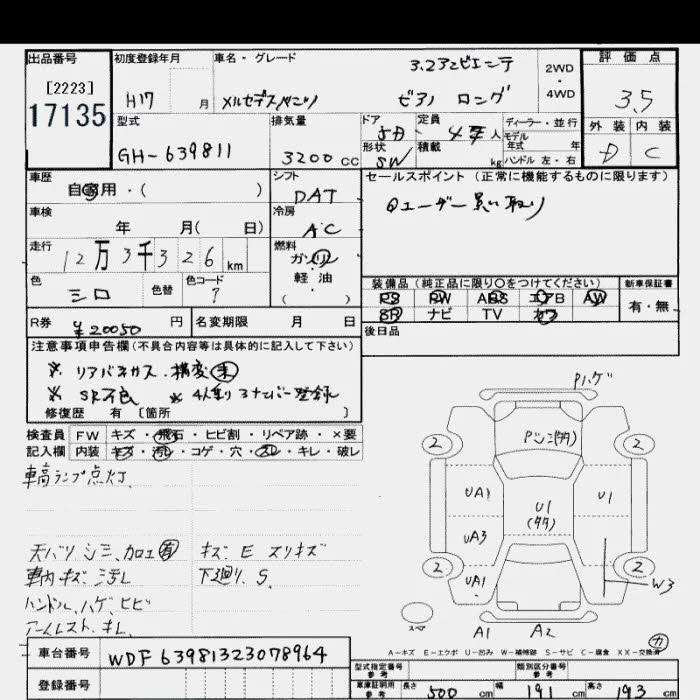 出品番号 初度登録年月 車名・グレード 評価点
[2223] 3.2アンビエンテ 2WD ・ 4WD
17135 H17 月 メルセデスベンツ ビアノ ロング 3.5
型式 排気量 ドア 5D 定員 人 ディーラー・並行 外装 内装
GH-639811 3200 cc 形状 SW 積載 kg モデル年式 年 ハンドル 左・右 D C
車歴 自家用・( ) シフト DAT セールスポイント (正常に機能するものに限ります)
車検 年 月( 日) 冷房 AC
走行 12万3千326 km 燃料 ガソリン 軽・油 ( )
色 シロ 色替 色コード ? 装備品 (純正品に限り○をつけてください) 新車保証書
PS PW ABS エアB AW 有・無
SR ナビ TV カワ
R券 ¥20050 円 名変期限 月 日 後日品
注意事項申告欄(不具合内容等は具体的に記入して下さい)
※ リアバネカス.構変
※ SR不良 ※ 4人乗り 3ナンバー登録
修復歴 有 〔箇所 〕
検査員 FW キズ・飛石・ヒビ割・リペア跡・×要
記入欄 内装 キズ・汚レ・コゲ・穴・スレ・キレ・破レ
車高ランプ点灯、
天バリ シミ、加工有 キズ.E スリキズ
車内キズ.汚レ 下廻り.S
ハンドル、ハゲ、ヒビ
アームレスト.キレ
Pハゲ
2 2
UA1 U1 U1
UA3
2 UA1 2
W3
A1 A2
A-キズ E-エクボ U-凹み W-補修跡 S-サビ C-腐食 XX-交換済
車台番号 WDF63981323078964
登録番号
型式指定番号 参考 類別区分番号 参考
車庫証明用 参考 長さ 500 cm 幅 191 cm 高さ 193 cm